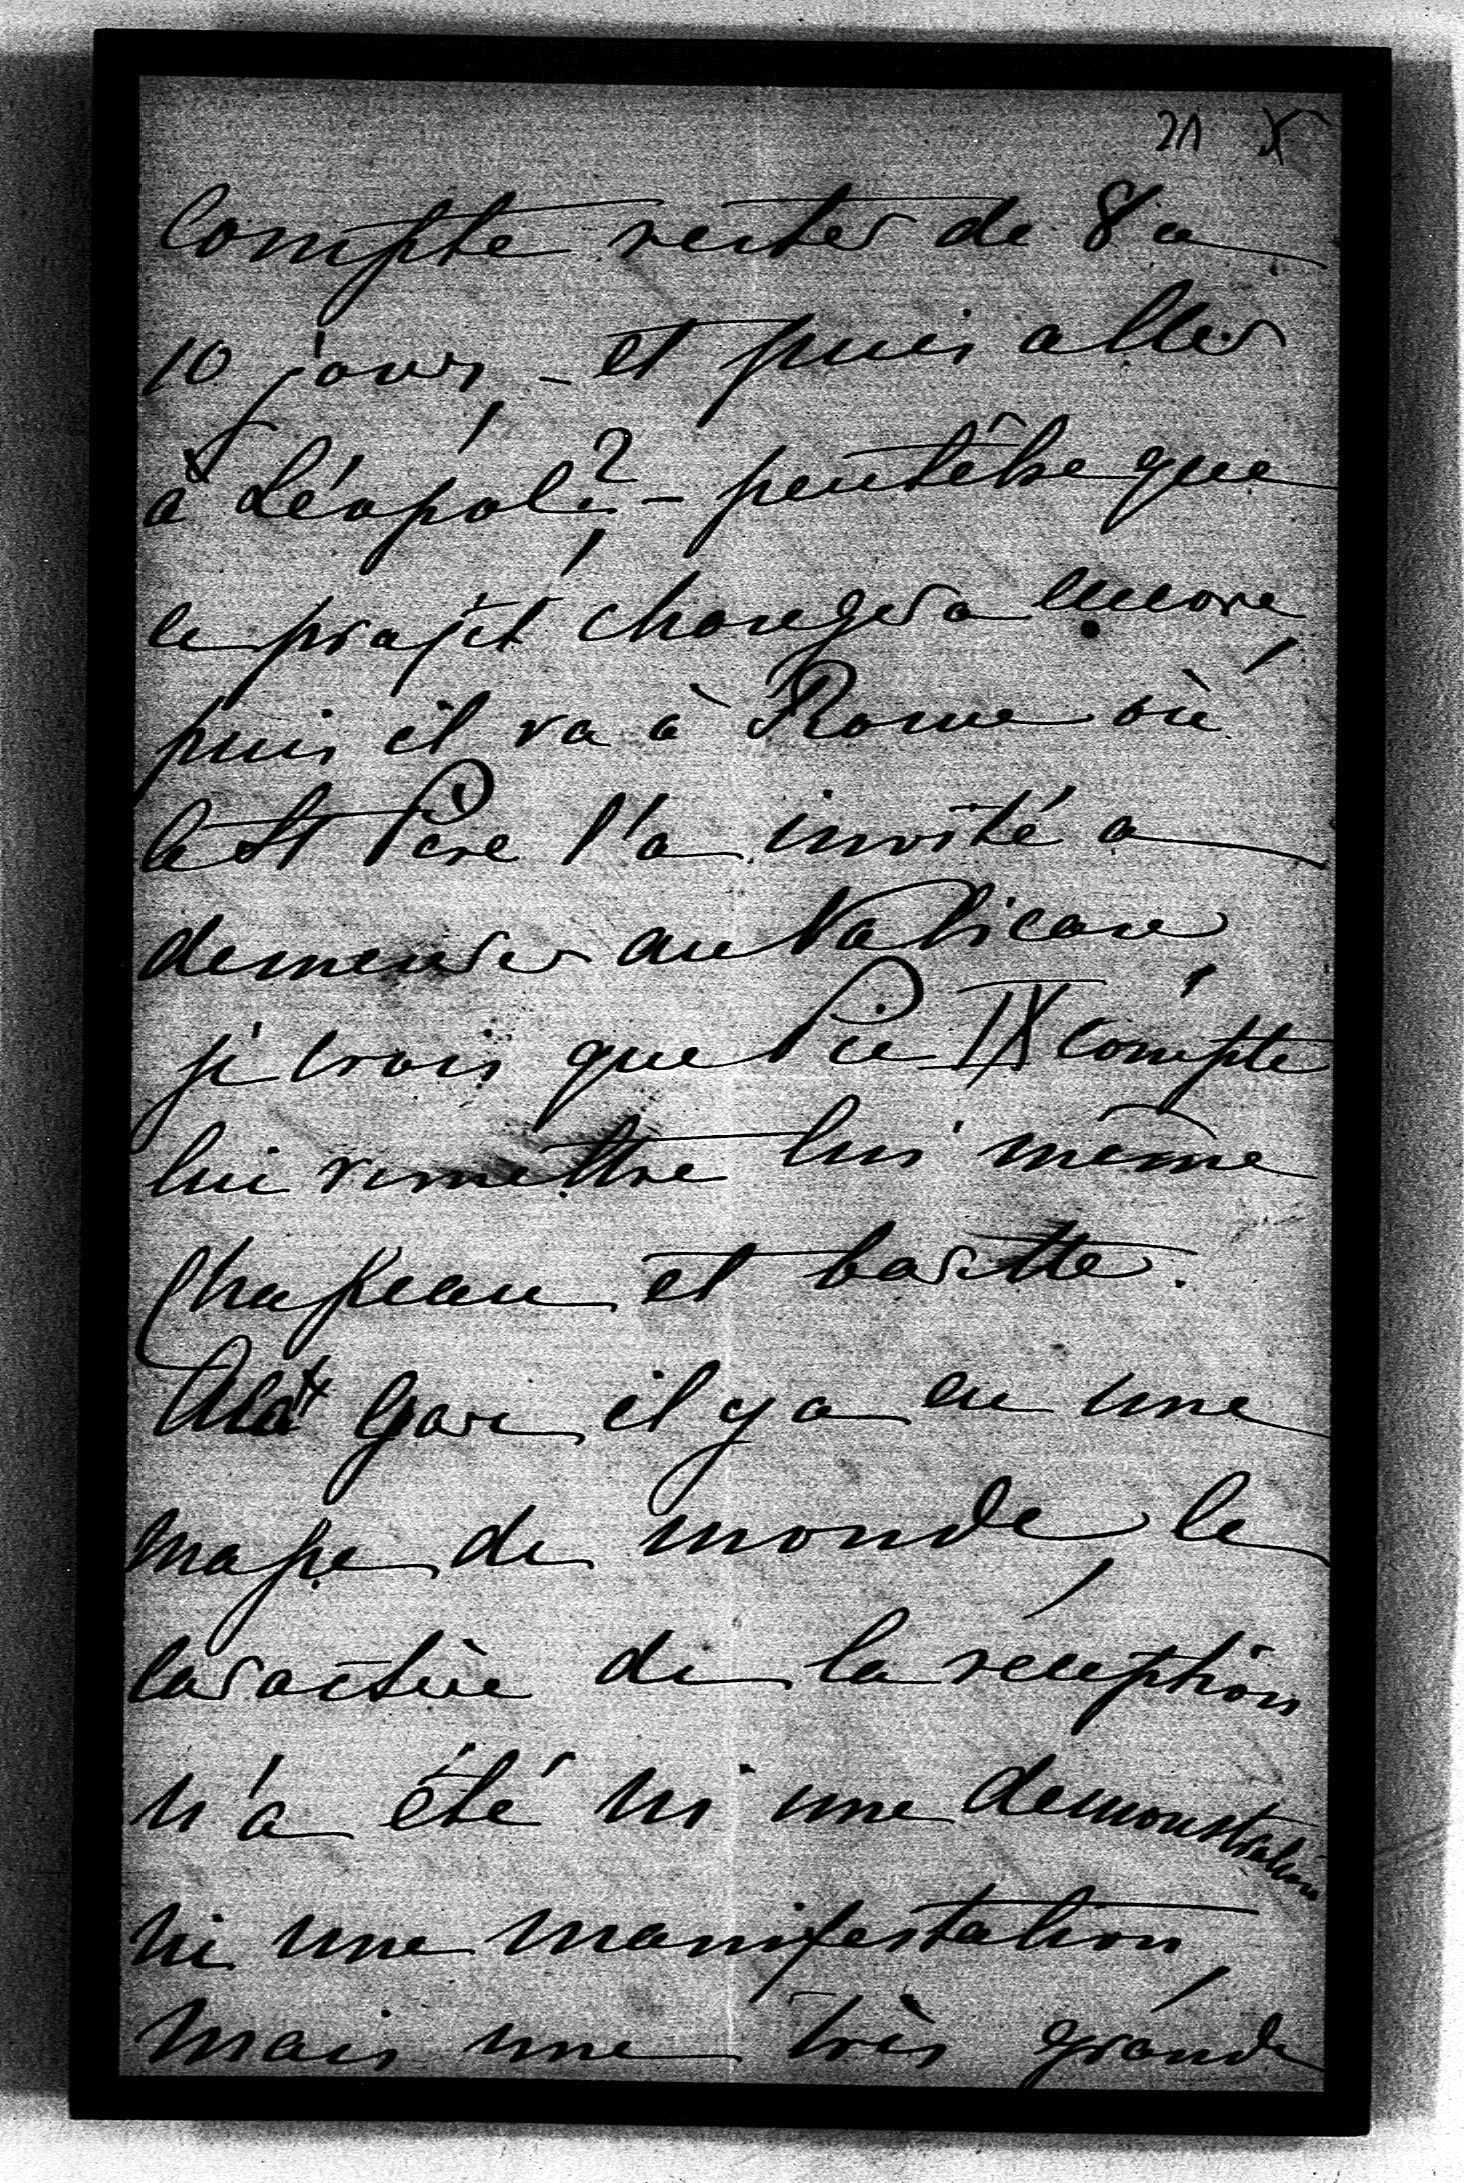 21 X
Compte rester de 8 a
10 jours, - et puis aller
à Léopol? - peutêtre que
le projèt changera encore,
puis il va à Rome où
le St Père l'a invité a
demeurer au Vatican,
je crois que Pie IX compte
lui remettre lui même
Chapeau et barette.
la gare il y a eu une
masse de monde, le
caractère de la réception
n'a été ni une démonstration
ni une manifestation,
mais une très grande